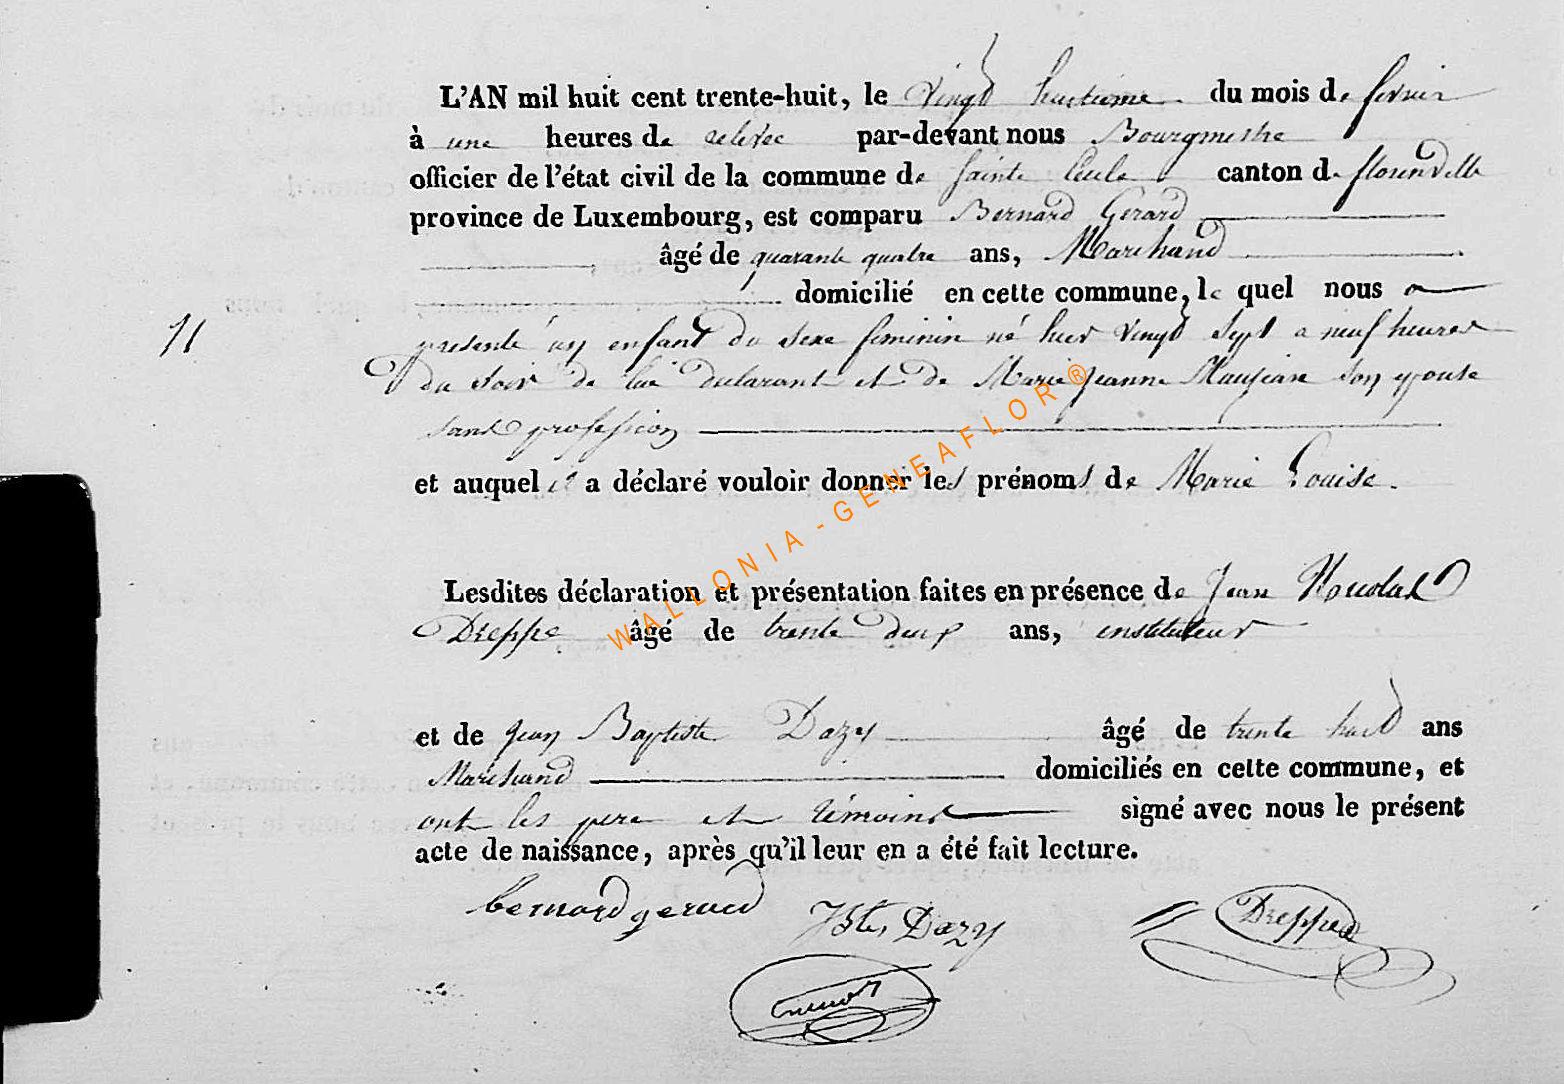 L'AN mil huit cent trente-huit, le vingt huitième du mois de fevrier
à une heures de relevée par-devant nous Bourgmestre
officier de l'état civil de la commune de Sainte Cecile canton de florenville
province de Luxembourg, est comparu Bernard Gerard
âgé de quarante quatre ans, Marchand
domicilié en cette commune, le quel nous a
11
presenté un enfant du sexe feminin né hier vingt sept a neuf heures
du soir de lui declarant et de Marie Jeanne Maujean son epouse
sans profession
et auquel il a déclaré vouloir donner les prénoms de Marie Louise.
Lesdites déclaration et présentation faites en présence de Jean Nicolas
Dreppe âgé de trente deux ans, instituteur
et de Jean Baptiste Dazy âgé de trente huit ans
Marchand domiciliés en cette commune, et
ont les pere et témoins signé avec nous le présent
acte de naissance, après qu'il leur en a été fait lecture.
bernard gerard JBte Dazy Dreppe
WALLONIA - GENEAFLOR ®